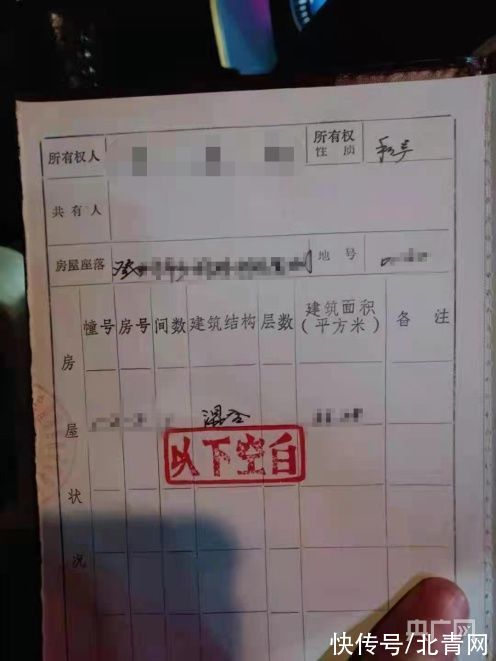 所有权人
所有权
性质
私产
共有人
房屋座落
地号
幢号 房号 间数 建筑结构 层数 建筑面积
(平方米) 备注
房屋状况
混合
以下空白
央广网
快传号/北青网